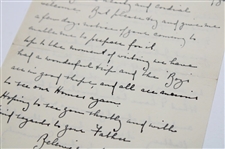 and cordial
welcome. But please try and give me
a few days' notice of your coming to
enable me to prepare for it.
Up to the moment of writing we have
had a wonderful trip and the "Boys"
are in good shape and all are anxious
to see our Homes again.
Hoping to see you shortly and with
kind regards to your Father